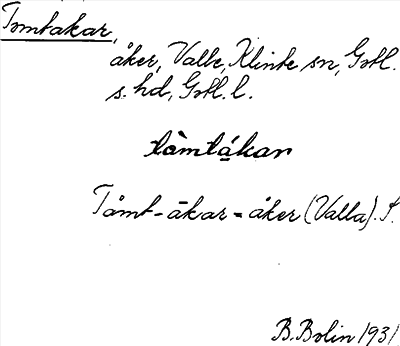 Tomtakar,
åker, Valle, Klinte sn, Gotl.
s. hd, Gotl. l.
tò̀mtákar
Tåmt-ākar = åker (Valla). S.
B. Bolin 1931